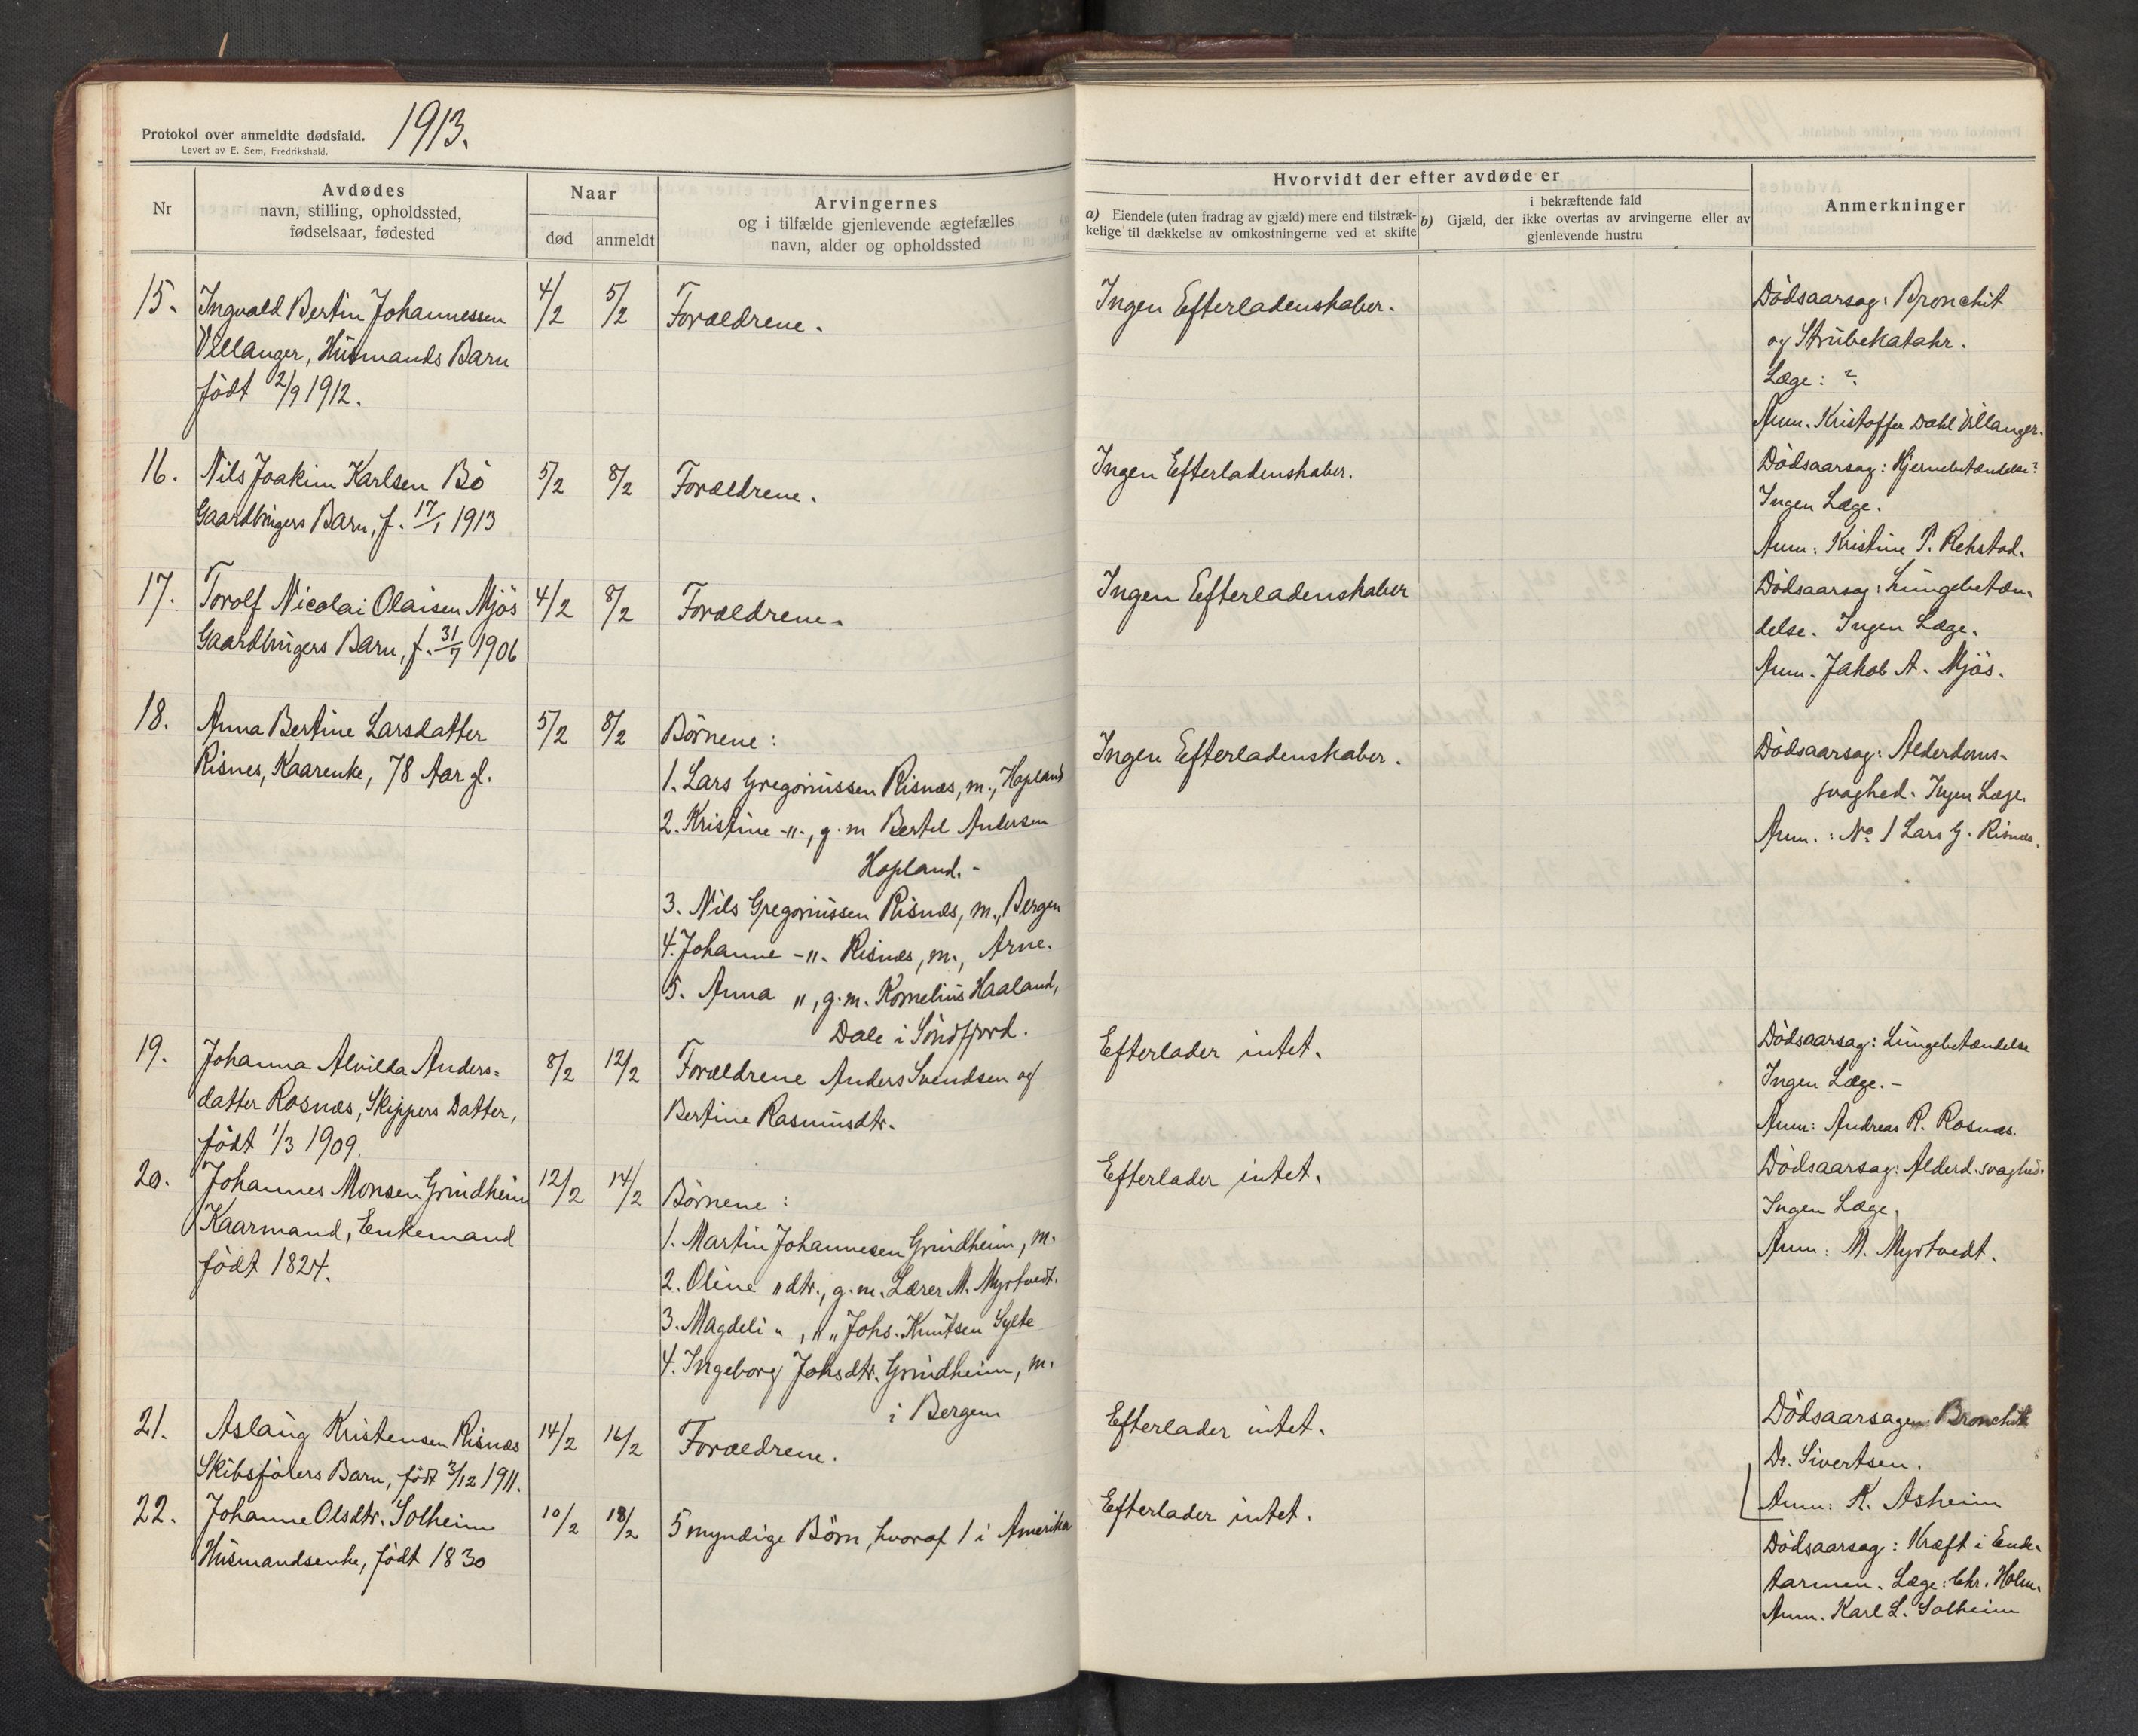 Protokol over anmeldte dødsfald.
Levert av E. Sem, Fredrikshald.
1913.
Nr
Avdødes
navn, stilling, opholdssted,
fødselsaar, fødested
Naar
død
anmeldt
Arvingernes
og i tilfælde gjenlevende ægtefælles
navn, alder og opholdssted
Hvorvidt der efter avdøde er
a) Eiendele (uten fradrag av gjæld) mere end tilstræk-
kelige til dækkelse av omkostningerne ved et skifte
i bekræftende fald
b) Gjæld, der ikke overtas av arvingerne eller av
gjenlevende hustru
Anmerkninger
15.
Ingvald Bertin Johannessen
Villanger, Husmands Barn
født 2/9 1912.
4/2
5/2
Forældrene.
Ingen Efterladenskaber.
Dødsaarsag: Bronchit
og Strubekatahr.
Læge: ?
Anm. Kristoffer Dahl Villanger.
16.
Nils Joakim Karlsen Bö
Gaardbrugers Barn, f. 17/1 1913
5/2
8/2
Forældrene.
Ingen Efterladenskaber.
Dödsaarsag: Hjernebetændelse?
Ingen Læge.
Anm: Kristine P. Rekstad.
17.
Torolf Nicolai Olaisen Mjös
Gaardbrugers Barn, f. 31/7 1906
4/2
8/2
Forældrene.
Ingen Efterladenskaber
Dödsaarsag: Lungebetæn-
delse. Ingen Læge.
Anm. Jakob A. Mjös.
18.
Anna Bertine Larsdatter
Risnes, Kaarenke, 78 Aar gl.
5/2
8/2
Börnene:
1. Lars Gregoriussen Risnæs, m., Hopland
2. Kristine -"-, g. m Bertel Andersen
Hopland.-
3. Nils Gregoriussen Risnæs, m., Bergen
4. Johanne -"- Risnæs, m., Arne.
5. Anna ", g. m. Kornelius Haaland,
Dale i Söndfjord.
Ingen Efterladenskaber.
Dödsaarsag: Alderdoms-
svaghed. Ingen Læge.
Anm.: No 1 Lars G. Risnæs.
19.
Johanna Alvilda Anders=
datter Rosnæs, Skippers Datter,
født 1/3 1909.
8/2
12/2
Forældrene Anders Svendsen og
Bertine Rasmusdtr.
Efterlader intet.
Dödsaarsag: Lungebetændelse
Ingen Læge.-
Anm: Andreas R. Rosnæs.
20.
Johannes Monsen Grindheim
Kaarmand, Enkemand
født 1824.
12/2
14/2
Börnene:
1. Martin Johannesen Grindheim, m.
2. Oline "dtr., g. m. Lærer M. Myrtvedt.
3. Magdeli ", " " Johs. Knutsen Sylte
4. Ingeborg Johsdtr. Grindheim, m.
i Bergen
Efterlader intet.
Dödsaarsag: Alderd. svaghed.
Ingen Læge.
Anm: M. Myrtvedt.
21.
Aslaug Kristensen Risnæs
Skibsførers Barn, født 3/12 1911.
14/2
16/2
Forældrene.
Efterlader intet.
Dödsaarsagen: Bronchit
Dr. Sivertsen.
Anm: K. Asheim
22.
Johanne Olsdtr. Solheim
Husmandsenke, født 1830
10/2
18/2
5 myndige Börn, hvoraf 1 i Amerika
Efterlader intet.
Dödsaarsag: Kræft i Ende-
tarmen. Læge: Chr. Holm.
Anm. Karl L. Solheim